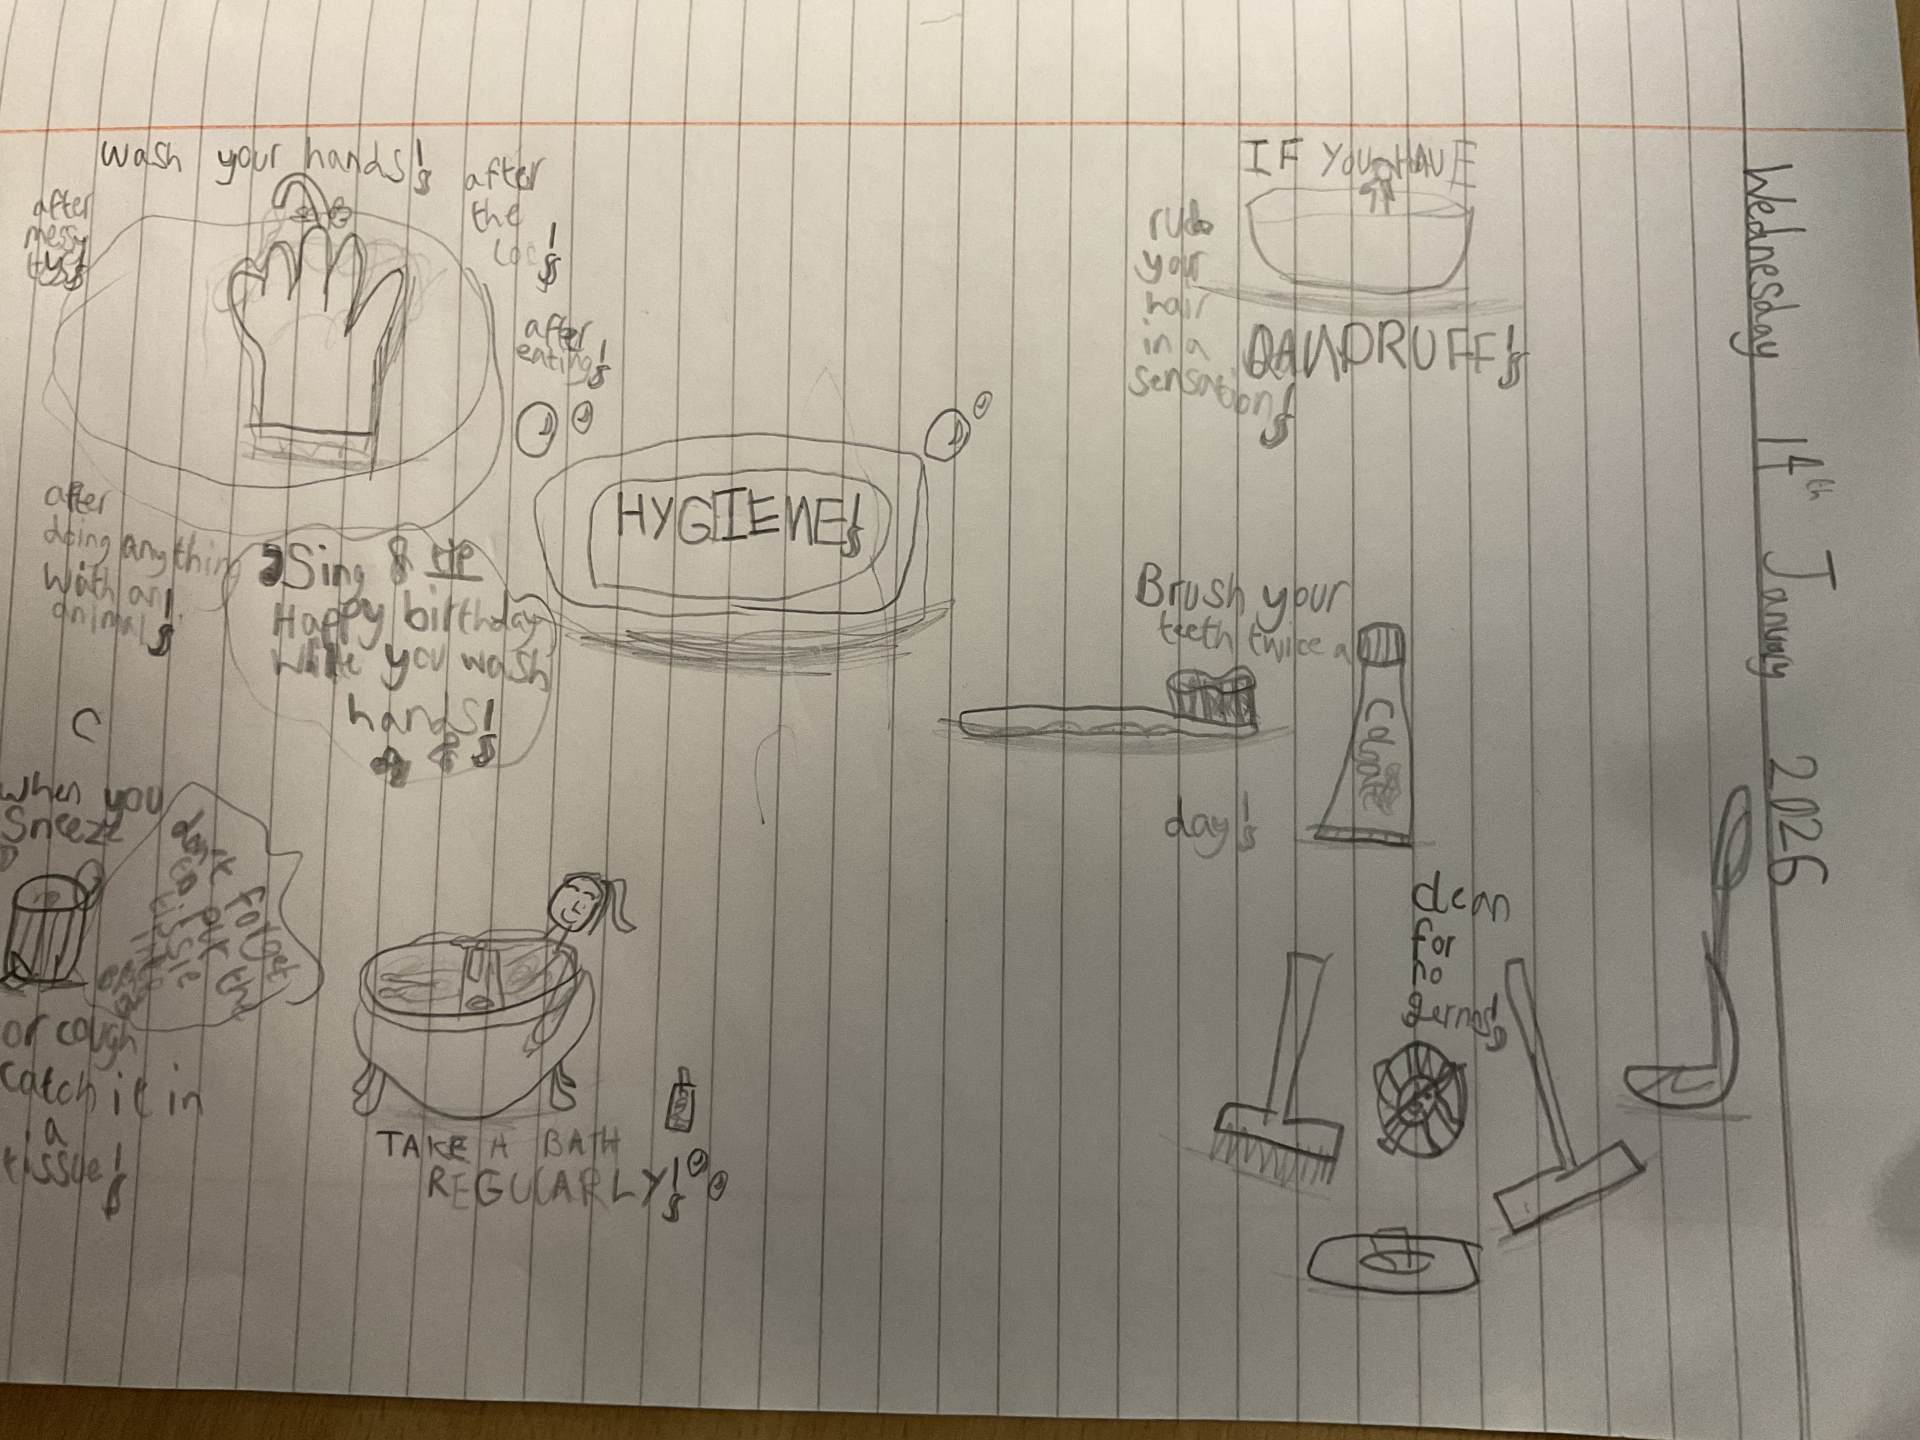 Wednesday 14th January 2026
wash your hands!
after
messy
after
the
after
eating!
after
doing anything
with an
animal!
Sing
Happy birthday
while you wash
hands!
HYGIENE!
IF YOU HAVE
DANDRUFF!
rub
your
hair
in a
sensation!
Brush your
teeth twice a
day!
when you
Sneeze
or cough
catch it in
a
tissue!
don't forget
to put the
tissue
in the
TAKE A BATH
REGULARLY!
clean
for
no
germs!